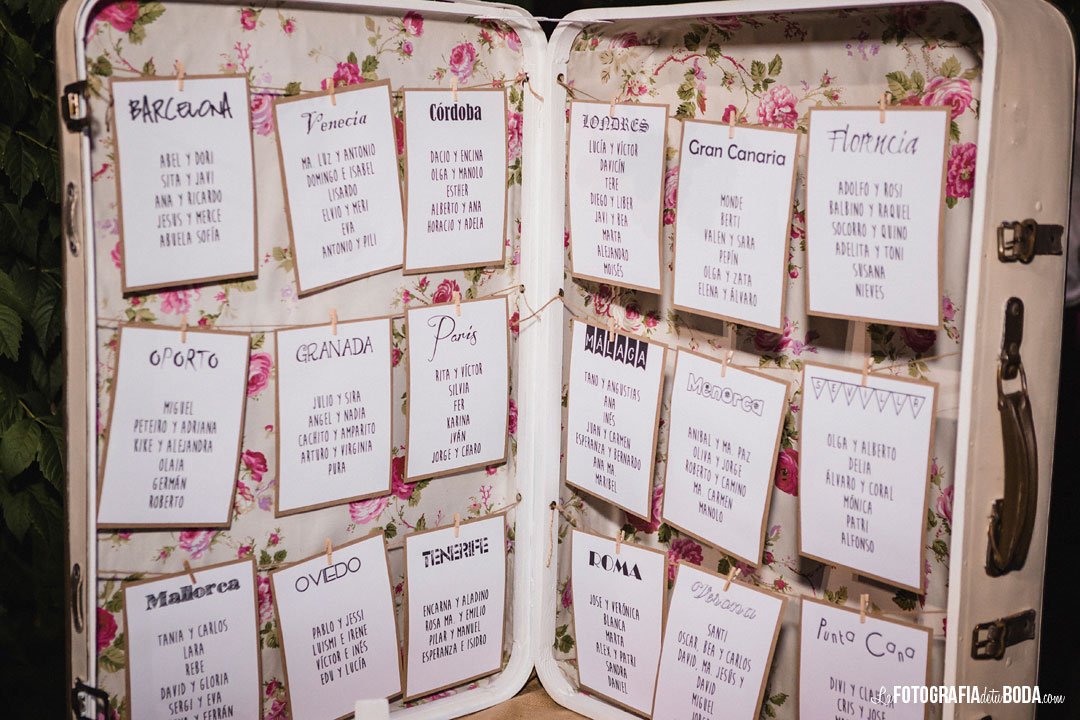 BARCELONA
ABEL Y DORI
SITA Y JAVI
ANA Y RICARDO
JESUS Y MERCE
ABUELA SOFÍA
Venecia
MA. LUZ Y ANTONIO
DOMINGO E ISABEL
LISARDO
ELVIO Y MERI
EVA
ANTONIO Y PILI
Córdoba
DACIO Y ENCINA
OLGA Y MANOLO
ESTHER
ALBERTO Y ANA
HORACIO Y ADELA
LONDRES
LUCÍA Y VÍCTOR
DAVICÍN
TERE
DIEGO Y LIBER
JAVI Y BEA
MARTA
ALEJANDRO
MOISÉS
Gran Canaria
MONDE
BERTI
VALEN Y SARA
PEPÍN
OLGA Y ZATA
ELENA Y ÁLVARO
Florencia
ADOLFO Y ROSI
BALBINO Y RAQUEL
SOCORRO Y QUINO
ADELITA Y TONI
SUSANA
NIEVES
OPORTO
MIGUEL
PETEIRO Y ADRIANA
KIKE Y ALEJANDRA
OLAIA
GERMÁN
ROBERTO
GRANADA
JULIO Y SIRA
ANGEL Y NADIA
CACHITO Y AMPARITO
ARTURO Y VIRGINIA
PURA
París
RITA Y VÍCTOR
SILVIA
FER
KARINA
IVÁN
JORGE Y CHARO
MÁLAGA
TANO Y ANGUSTIAS
ANA
INÉS
JUAN Y CARMEN
ESPERANZA Y BERNARDO
ANA MA.
MARIBEL
Menorca
ANIBAL Y MA. PAZ
OLIVA Y JORGE
ROBERTO Y CAMINO
MA. CARMEN
MANOLO
SEVILLA
OLGA Y ALBERTO
DELIA
ÁLVARO Y CORAL
MÓNICA
PATRI
ALFONSO
Mallorca
TANIA Y CARLOS
LARA
BEBE
DAVID Y GLORIA
SERGI Y EVA
Y FERRÁN
OVIEDO
PABLO Y JESSI
LUISMI E IRENE
VÍCTOR E INÉS
EDU Y LUCÍA
TENERIFE
ENCARNA Y ALADINO
ROSA MA. Y EMILIO
PILAR Y MANUEL
ESPERANZA E ISIDRO
ROMA
JOSE Y VERÓNICA
BLANCA
MARTA
ALEX Y PATRI
SANDRA
DANIEL
Verona
SANTI
OSCAR, BEA Y CARLOS
DAVID, MA. JESÚS Y
DAVID
MIGUEL
Punta Cana
DIVI Y
CRIS Y JOSE
La FOTOGRAFIA de tu BODA.com